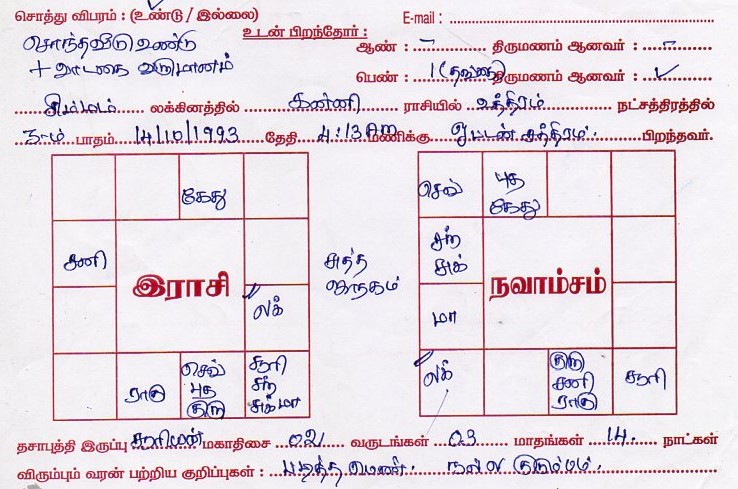 சொத்து விபரம் : (உண்டு / இல்லை)
E-mail :
உடன் பிறந்தோர் :
சொந்தவீடு உண்டு
ஆண் : – திருமணம் ஆனவர் : –
+ வாடகை வருமானம்
பெண் : 1 (தங்கை) திருமணம் ஆனவர் : ✓
சிம்மம் லக்கினத்தில் கன்னி ராசியில் உத்திரம் நட்சத்திரத்தில்
பாதம் 14/10/1993 தேதி 4:13 AM மணிக்கு பிறந்தவர்.
கேது
செவ்
புத
கேது
சனி
சுத்த
ஜாதகம்
சந்
சுக்
இராசி
நவாம்சம்
லக்
மா
ராகு
செவ்
புத
குரு
சூரி
சந்
சுக் மா
லக்
குரு
சனி
ராகு
சூரி
தசாபுத்தி இருப்பு சூரியன் மகாதிசை 02 வருடங்கள் 03 மாதங்கள் 14 நாட்கள்
விரும்பும் வரன் பற்றிய குறிப்புகள் : படித்த பெண். நல்ல குடும்பம்.